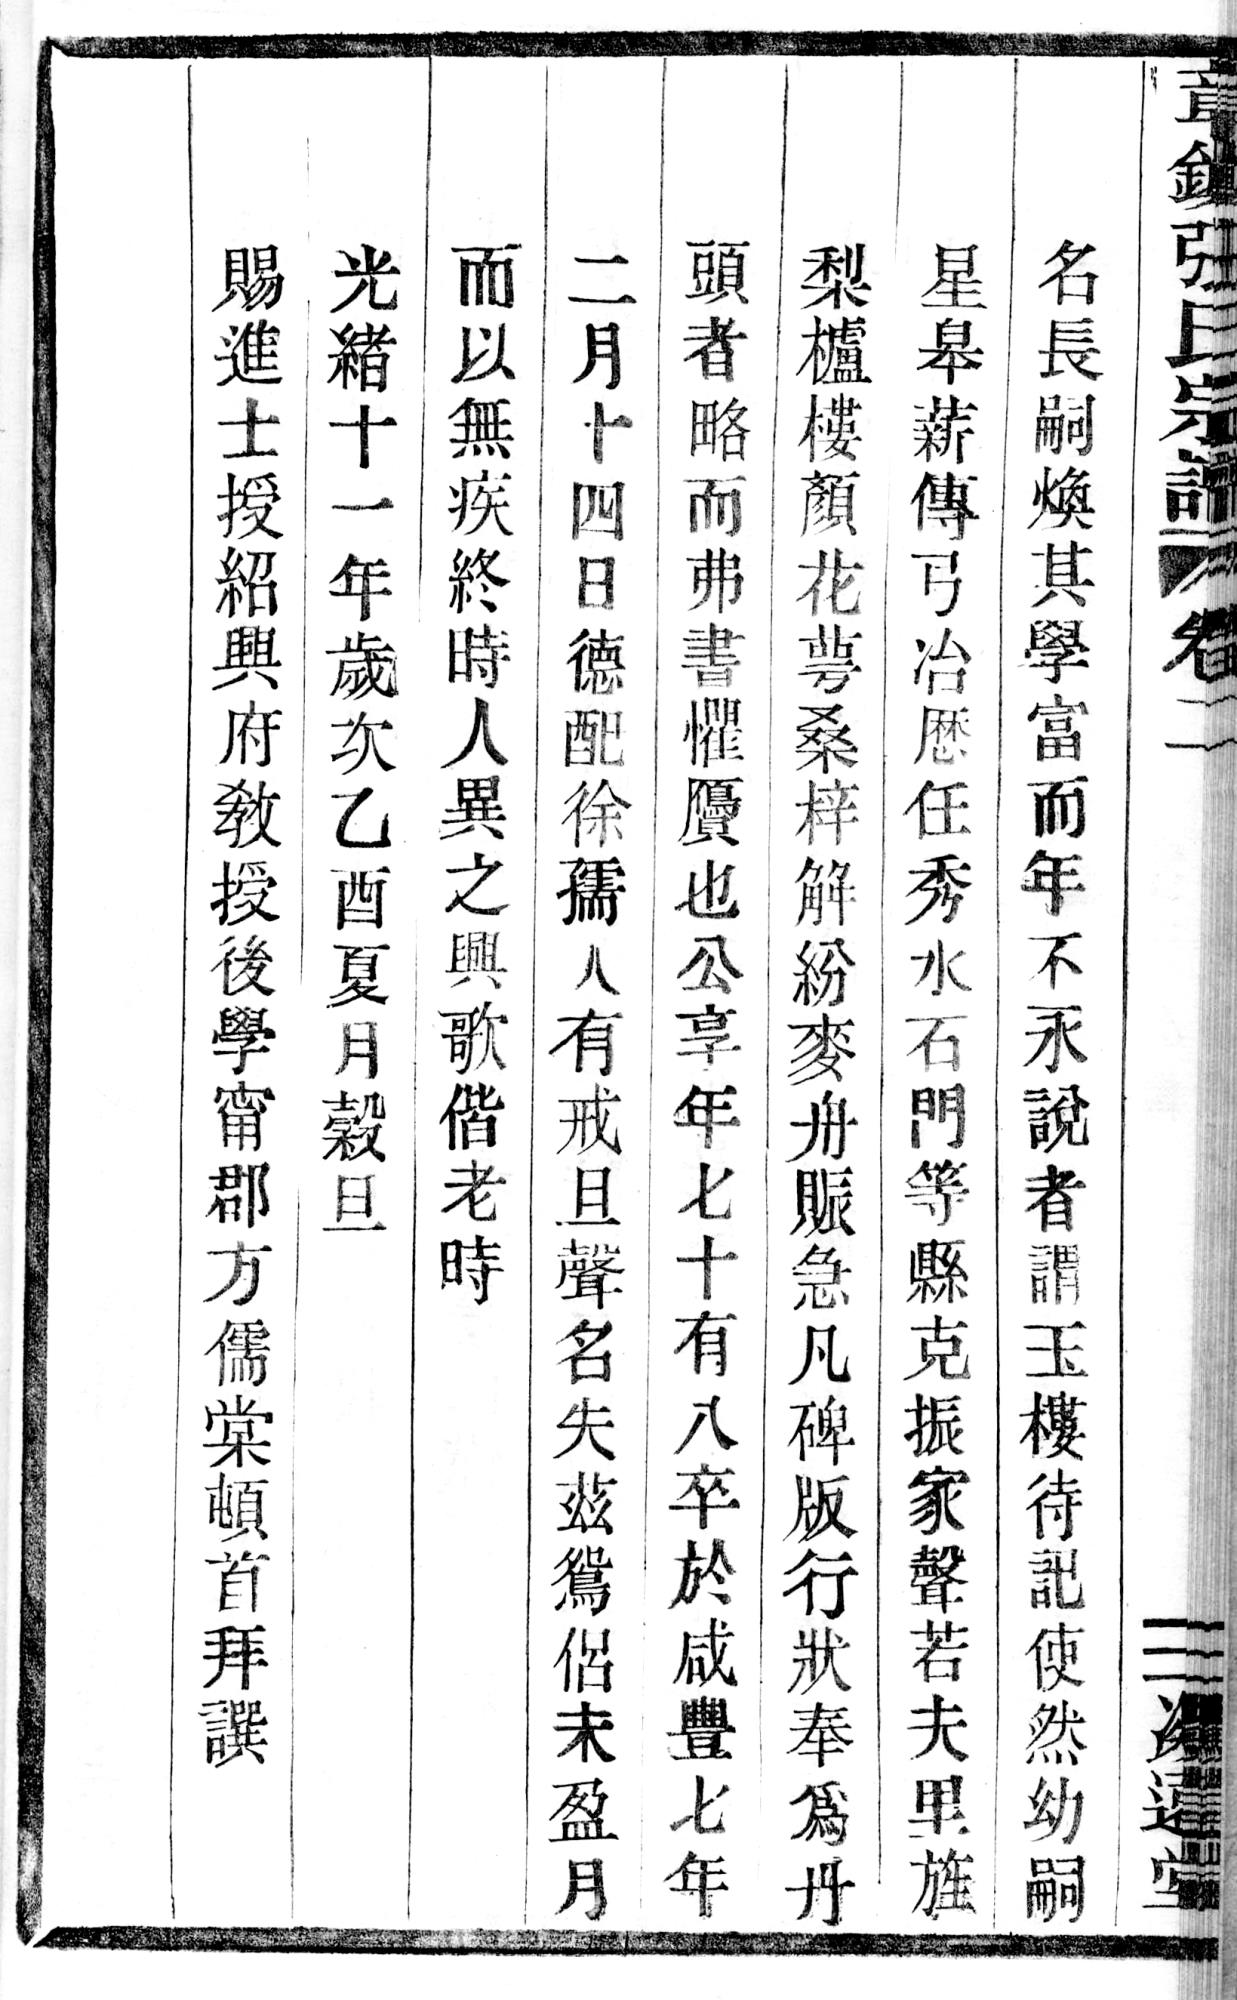 章鎮張氏宗譜 卷二 二 追遠堂
名長嗣煥其學富而年不永說者謂玉樓待記使然幼嗣
星皋薪傳弓冶歷任秀水石門等縣克振家聲若夫里旌
梨櫨樓顏花萼桑梓解紛麥舟賑急凡碑版行狀奉爲丹
頭者略而弗書懼贗也公享年七十有八卒於咸豐七年
二月十四日德配徐孺人有戒旦聲名失茲鴛侶未盈月
而以無疾終時人異之興歌偕老時
光緒十一年歲次乙酉夏月穀旦
賜進士授紹興府教授後學甯郡方儒棠頓首拜譔